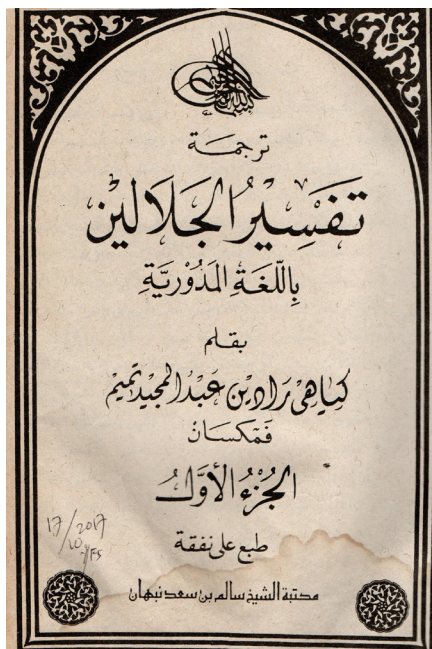 ترجمة
تَفْسِيْرُ الْجَلَالَيْنِ
بِاللُّغَةِ الْمَدُوْرِيَّةِ
بقلم
كياهى رادين عَبْدُ المجيد تميم
فمكسان
الجُزْءُ الأَوَّلُ
17/10/2017
طبع على نفقة
مكتبة الشيخ سالم بن سعد نبهان